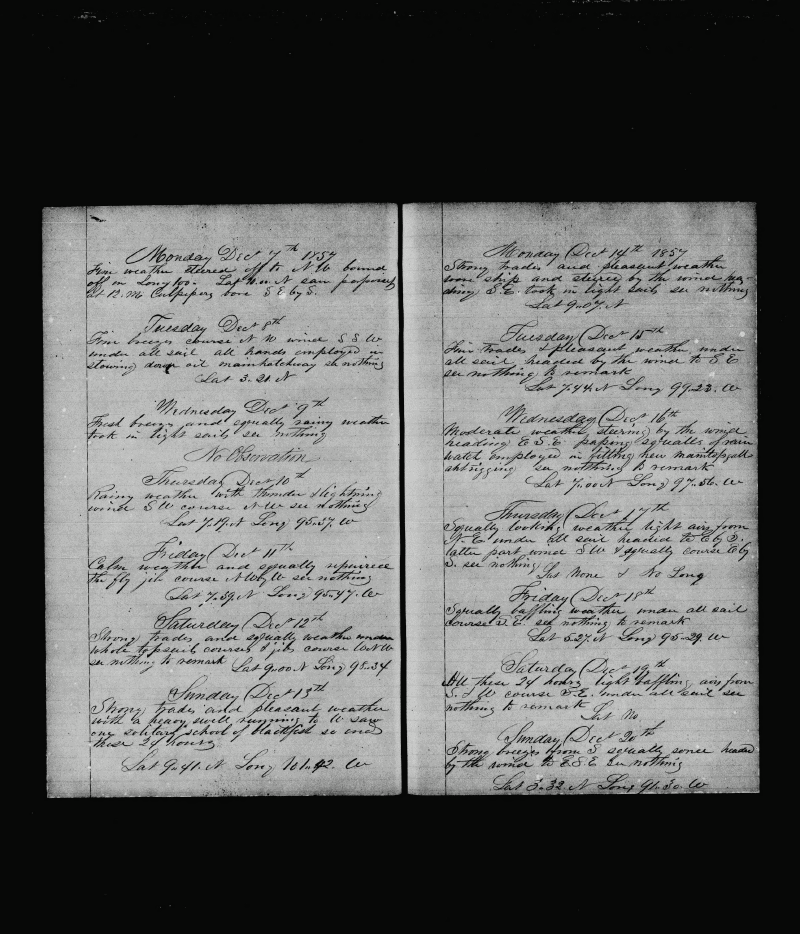 Monday Dect 7th 1857
Fine weather steered off to N W bound
off on Long Lat N saw porpoises
at 12. M. Culpeper bore S E by S.
Tuesday Dect 8th
Fine breezes course N W wind S S W
under all sail all hands employed in
stowing down oil mainhatchway see nothing
Lat 3..21 N
Wednesday Dect 9th
Fresh breeze and squally rainy weather
took in light sails see nothing
No Observation
Thursday Dect 10th
Rainy weather with thunder & lightning
wind S W course N W see nothing
Lat 7..17 N Long 95..37 W
Friday Dect 11th
Calm weather and squally repaired
the fly jib course N W by W see nothing
Lat 7..59 N Long 95..47 W
Saturday Dect 12th
Strong trades and squally weather under
whole topsail courses & jib course W N W
see nothing to remark Lat 9..00 N Long 98..34
Sunday Dect 13th
Strong trades and pleasant weather
with a heavy swell running to W saw
one solitary school of blackfish so ends
these 24 hours
Lat 9..41 N Long 101..42 W
Monday Dect 14th 1857
Strong trades and pleasant weather
wore ship and steered by the wind hea-
ding S. E. took in light sails see nothing
Lat 9..07 N
Tuesday Dect 15th
Fine trades & pleasant weather under
all sail headed by the wind to S E
see nothing to remark
Lat 7..44 N Long 99..23 W
Wednesday Dect 16th
Moderate weather steering by the wind
heading E S E passing squalls of rain
watch employed in fitting new maintopgall-
ant rigging see nothing to remark
Lat 7..00 N Long 97..56 W
Thursday Dect 17th
Squally looking weather light airs from
N. E under all sail headed to E by S.
latter part wind S W & squally course E by
S. see nothing
Lat None & No Long
Friday Dect 18th
Squally baffling weather under all sail
course S E. see nothing to remark
Lat 5..27 N Long 95..29 W
Saturday Dect 19th
All these 24 hours light baffling airs from
S. & W course S E. under all sail see
nothing to remark
Lat No
Sunday Dect 20th
Strong breezes from S squally some headed
by the wind to E S E see nothing
Lat 3..32 N Long 91..30 W